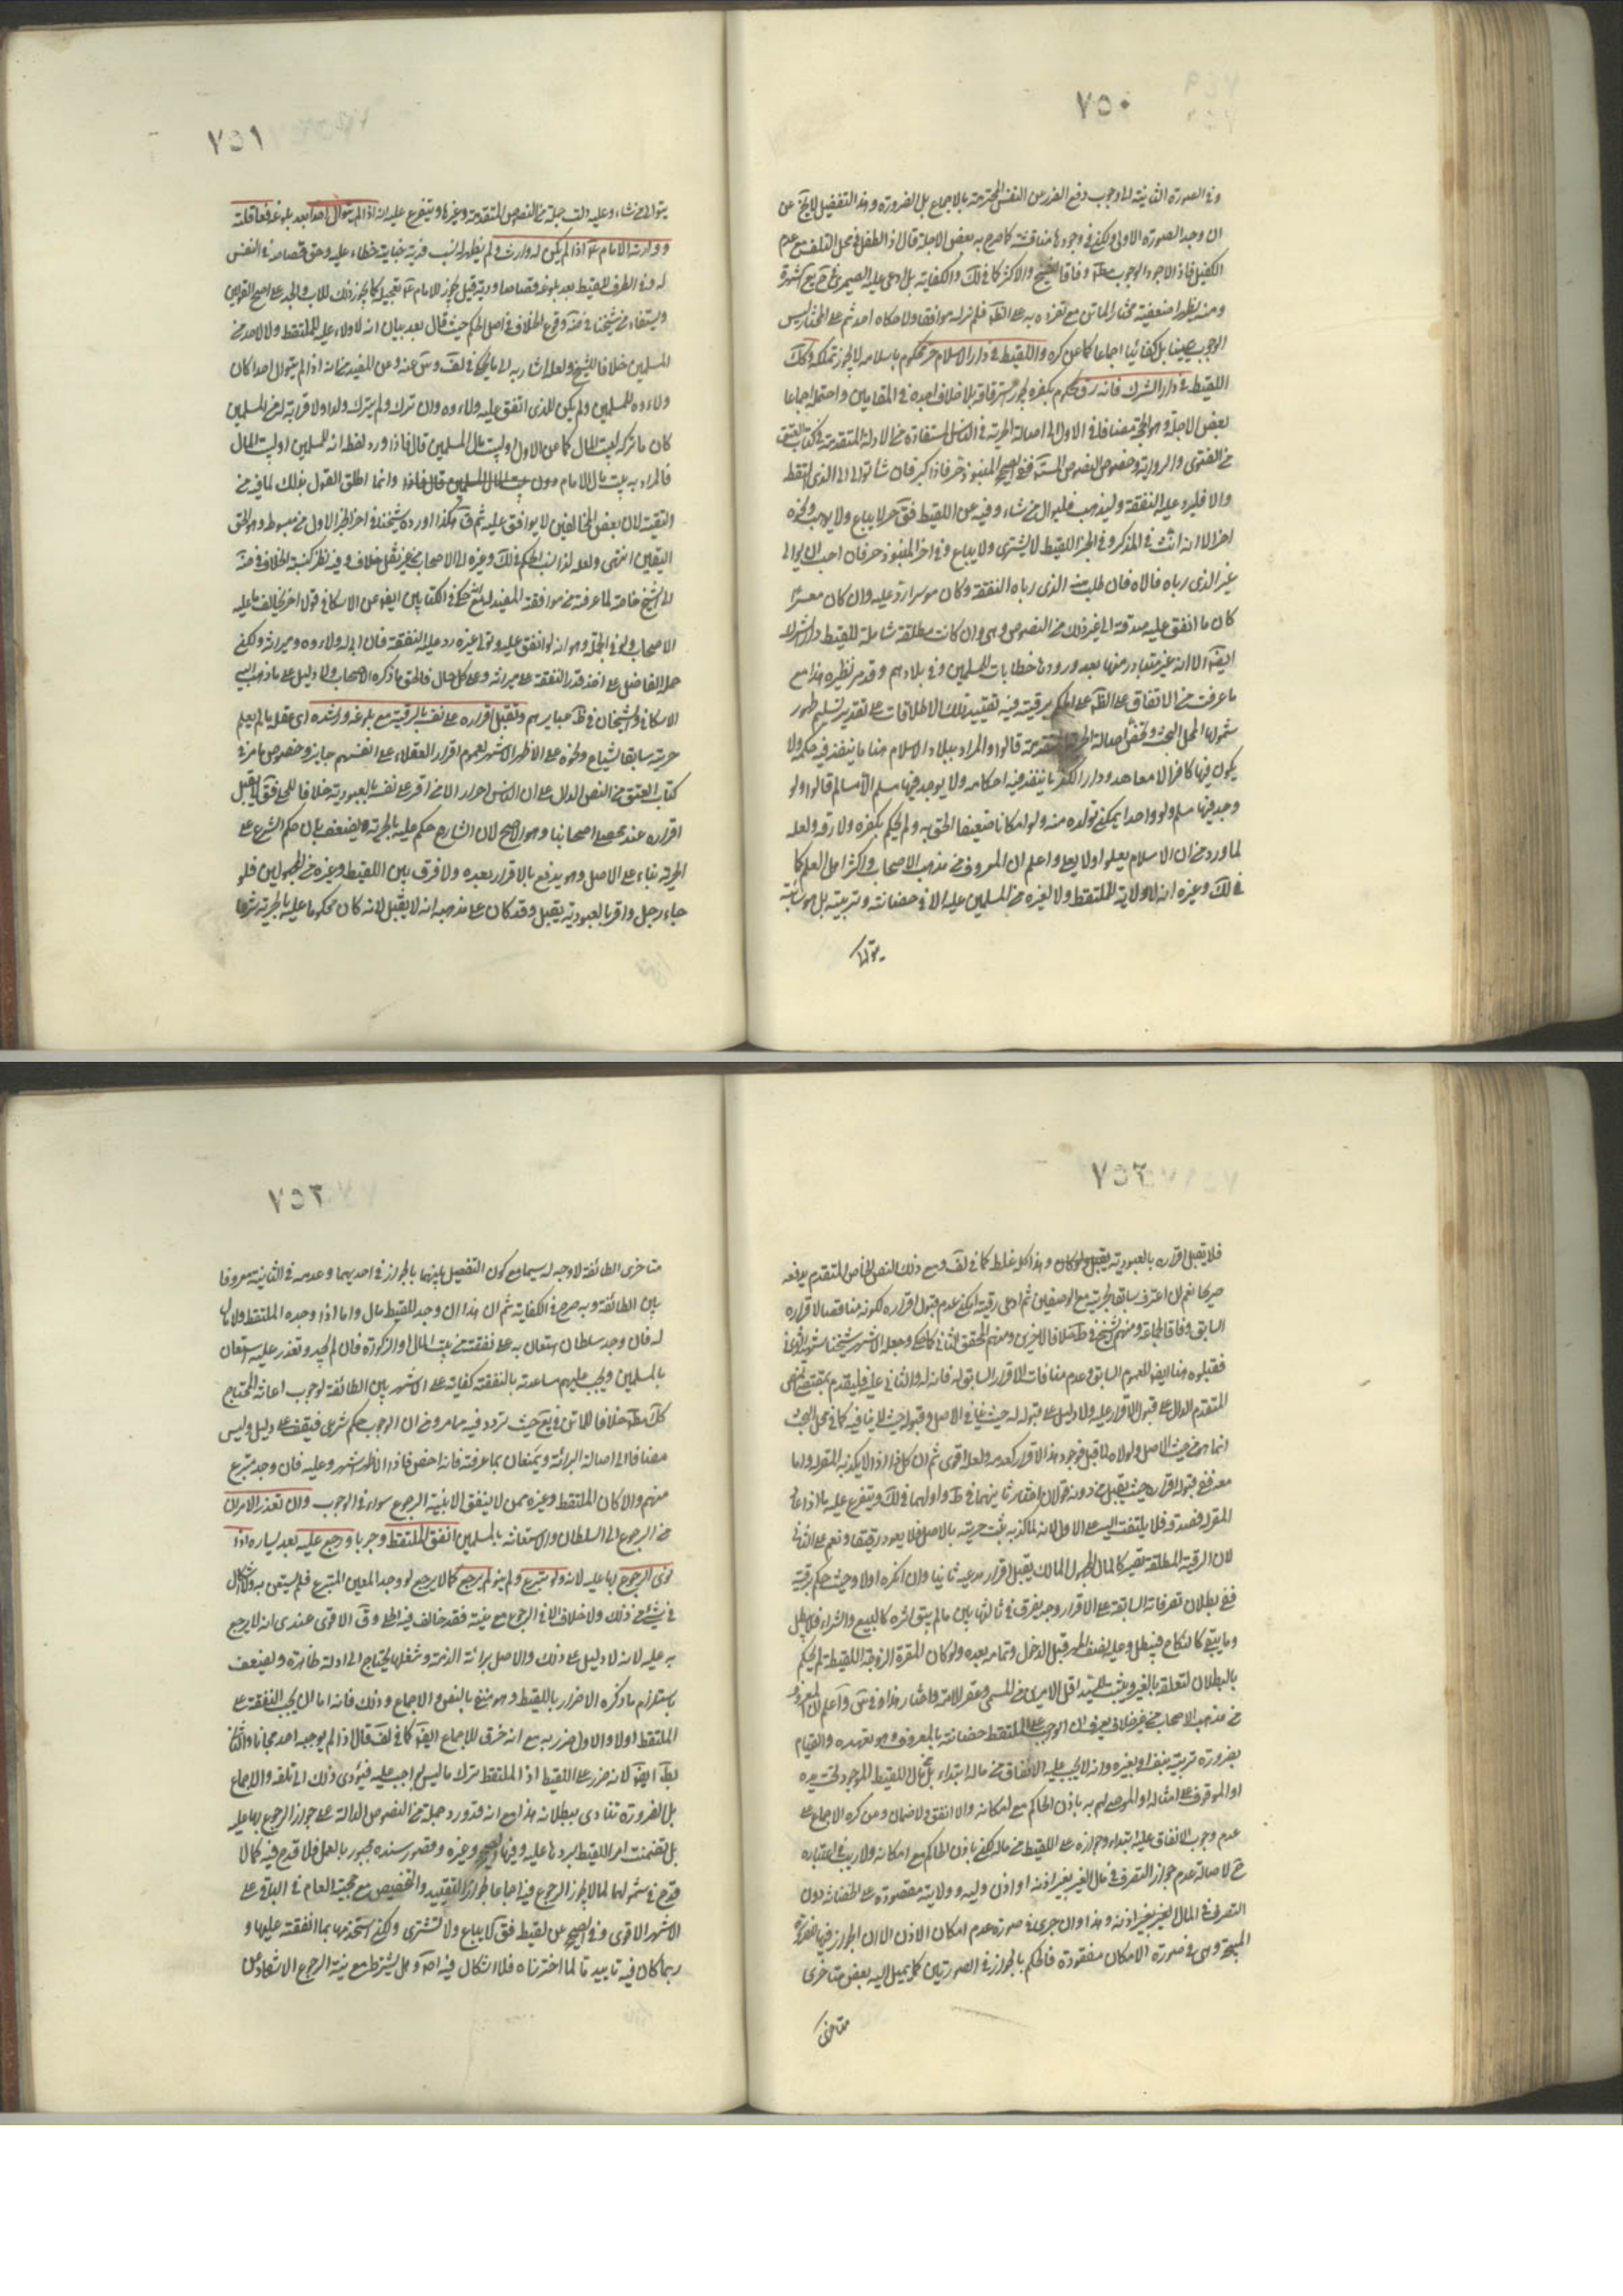 ٧٥٠
وفي الصورة الثانية الى وجوب دفع الضرر عن النفس المحترمة بالاجماع بل الضرورة وهذا التفصيل لا يخ عن
ان وجد الصورة الاولى ولكن في وجودها مناقشة كما صرح به بعض الاجلة قال اذ الطفل في محل التلف مع عدم
الكفيل فاذا الاجود الوجوب مطلقا وفاقا للشيخ والاكثر كما في لك والكفاية بل
ومنه يظهر ضعف مختار الماتن مع تفرده به على الظاهر فلم نر له موافقا ولا حكاه احد ثم على المختار ليس
الوجوب عينيا بل كفائيا اجماعا كما عن كره واللقيط في دار الاسلام حر محكوم باسلامه لا يجوز تملكه وكك
اللقيط في دار الشرك فانه رق محكوم بكفره يجوز استرقاقه بلا خلاف اجده في المقامين واحتمله اجماعا
بعض الاجلة وهو الحجة مضافا في الاول الى اصالة الحرية في الناس المستفادة من الادلة المتقدمة في كتاب العتق
من الفتوى والرواية وخصوص النصوص ففي الصحيح المنبوذ حر فاذا كبر فان شاء توالى الى الذي التقطه
والا فليرد عليه النفقة وليذهب فليوال من شاء وفيه عن اللقيط فق حر لا يباع ولا يوهب ونحوه
اخر الا انه انث في المذكر وفي الخبر اللقيط لا يشترى ولا يباع وفي اخر المنبوذ حر فان احب ان يوالي
غير الذي رباه فالاه فان طلب منه الذي رباه النفقة وكان موسرا رد عليه وان كان معسرا
كان ما انفق عليه صدقة الى غير ذلك من النصوص وهي وان كانت مطلقة شاملة للقيط دار الشرك
ايضا الا انه غير متبادر منها بعد ورودها خطابات للمسلمين وفي بلادهم وقد مر نظيره هذا مع
ما عرفت من الاتفاق على الظاهر على الحكم برقيته فيه تقييد تلك الاطلاقات على تقدير تسليم ظهور
شمولها لمحل البحث وتخص اصالة الحرية المتقدمة قالوا والمراد ببلاد الاسلام هنا ما ينفذ فيه حكمه ولا
يكون فيها كافر الا معاهد ودار الكفر ما ينفذ فيه احكامه ولا يوجد فيها مسلم الا مسالم قالوا ولو
وجد فيها مسلم ولو واحدا يمكن تولده منه ولو امكانا ضعيفا الحق به ولم يحكم بكفره ولا رقه ولعله
لما ورد من ان الاسلام يعلو ولا يعلى واعلم ان المعروف من مذهب الاصحاب واكثر اهل العلم كما
في لك وغيره انه لا ولاية للملتقط ولا لغيره من المسلمين عليه الا في حضانته وتربيته بل هو سائبة
يتولى
٧٥١
يتولى من شاء وعليه دلت جملة من النصوص المتقدمة وغيرها ويتفرع عليه انه اذا لم يتوال احدا بعد بلوغه فعاقلته
ووارثه الامام اذا لم يكن له وارث ولم يظهر له نسب فدية جنايته خطاء عليه وحق قصاصه في النفس
له وفي الطرف للقيط بعد بلوغه قصاصا ودية قيل يجوز للامام تعجيله كما يجوز ذلك للاب والجد على اصح القولين
ويستفاد من شيخنا في ضه وقوع الخلاف في اصل الحكم حيث قال بعد بيان انه لا ولاء عليه للملتقط ولا لاحد من
المسلمين خلافا للشيخ ولعله اشار به الى ما يحكى في لف وس عنه وعن المفيد من انه اذا لم يتوال احدا كان
ولاءوه للمسلمين ولم يكن للذي انفق عليه ولاءوه وان ترك ولم يترك ولدا ولا قرابة له من المسلمين
كان ما تركه لبيت المال كما عن الاول او لبيت مال المسلمين قال فاذا ورد لفظ انه للمسلمين او لبيت المال
فالمراد به بيت مال الامام دون بيت المال المسلمين وانما اطلق القول بذلك لما فيه من
التقية لان بعض المخالفين لا يوافق عليه ثم ق هكذا اورده شيخنا في اخر الجزء الاول من مبسوطه وهو الحق
اليقين انتهى ولعله لذا نسب الحكم في لك وغيره الى الاصحاب من غير نقل خلاف وفيه نظر كنسبة الخلاف في ضه
الى الشيخ خاصة لما عرفته من موافقة المفيد له نعم حكي في الكتابين ايضا عن الاسكافي قولا اخر يخالف ما عليه
الاصحاب ولو في الجملة وهو انه لو انفق عليه وتولى غيره رد عليه النفقة فان ابى له ولاءوه وميراثه ولكن
حمله الفاضل على اخذ قدر النفقة على ميراثه وعلى كل حال فالحق ما ذكره الاصحاب ولا دليل على ما ذهب اليه
الاسكافي والشيخان في ظ عبايرهم وتقبل اقراره على نفسه بالرقية مع بلوغه ورشده اي عقله ما لم يعلم
حريته سابقا بشياع ونحوه على الاظهر الاشهر لعموم اقرار العقلاء على انفسهم جايز وخصوص ما مر في
كتاب العتق من النص الدال على ان الناس احرار الا من اقر على نفسه بالعبودية خلافا للحلي فق لا يقبل
اقراره عند محصلي اصحابنا وهو الاصح لان الشارع حكم عليه بالحرية ويضعف بان حكم الشرع على
الحرية بناء على الاصل وهو يندفع بالاقرار بعده ولا فرق بين اللقيط وغيره من المجهولين فلو
جاء رجل واقر بالعبودية يقبل وقد كان على مذهبه انه لا يقبل لانه كان محكوما عليه بالحرية شرعا
٧٥٢
فلا يقبل اقراره بالعبودية وهذا كله غلط كما في لف ومع ذلك النص الخاص المتقدم يدفعه
صريحا نعم ان اعترف سابقا بحريته مع الوصفين ثم ادعى رقيته امكن عدم قبول اقراره لكونه مناقضا لاقراره
السابق وفاقا لجماعة ومنهم الشيخ في ط خلافا لاخرين ومنهم المحقق الثاني كما حكي وجعله الاشهر شيخنا الشهيد الثاني
فقبلوه هنا ايضا للعموم السابق وعدم منافات الاقرار السابق له فانه له والثاني عليه فليقدم بمقتضى النص
المتقدم الدال على قبول الاقرار عليه ولا دليل على قبوله له حيث ينافي الاصل وقبوله حيث لا ينافيه كما في محل البحث
انما هو من حيث الاصل ولولاه لما قبل فوجود هذا الاقرار كعدمه ولعله اقوى ثم ان كل ذا اذا لم يكذبه المقر له واما
معه ففي قبول اقراره حيث يقبل من دونه قولان اختار ثانيهما في ط واولهما في لك ويتفرع عليه ما اذا عاد
المقر له فصدقه فلا يلتفت اليه على الاول لانه لما كذبه ثبت حريته بالاصل فلا يعود رقيقا ونعم على الثاني
لان الرقية المطلقة تصير كالمال المجهول المالك يقبل اقرار مدعيه ثانيا وان انكره اولا وحيث حكم برقيته
ففي بطلان تصرفاته السابقة على الاقرار وجه يفرق في ثالثها بين ما لم يبق اثره كالبيع والشراء فلا يبطل
وما يبقى كالنكاح فيبطل وعليه نصف المهر قبل الدخول وتمامه بعده ولو كان المقرة الزوجة اللقيطة لم يحكم
بالبطلان لتعلقه بالغير ويثبت للسيد اقل الامرين من المسمى وعقر الامة واختار هذا في س واعلم ان المعروف
من مذهب الاصحاب من غير خلاف يعرف ان الواجب على الملتقط حضانته بالمعروف وهو تعهده والقيام
بضرورة تربيته بنفسه او بغيره وانه لا يجب عليه الانفاق من ماله ابتداء بل من مال اللقيط الموجود تحت يده
او الموقوف على امثاله او الموصى لهم به باذن الحاكم مع امكانه والا انفق ولا ضمان وعن كره الاجماع على
عدم وجوب الانفاق عليه ابتداء وجوازه على اللقيط من ماله لكن باذن الحاكم مع امكانه ولا ريب في اعتباره
ح لاصالة عدم جواز التصرف في مال الغير بغير اذنه او اذن وليه وولايته مقصورة على الحضانة دون
التصرف في المال لغير بغير اذنه وهذا وان جرى في صورة عدم امكان الاذن الا ان الجواز فيها لضرورة
المبيحة وهي في صورة الامكان مفقودة فالحكم بالجواز في الصورتين كما يميل اليه بعض متاخري
متاخري
٧٥٣
متاخري الطائفة لا وجه له سيما مع كون التفصيل بينهما بالجواز في احديهما وعدمه في الثانية معروفا
بين الطائفة وبه صرح في الكفاية ثم ان هذا ان وجد للقيط مال واما اذا وجده الملتقط ولا مال
له فان وجد سلطان استعان به على نفقته من بيت المال او الزكوة فان لم يجد وتعذر عليه استعان
بالمسلمين ويجب عليهم مساعدته بالنفقة كفاية على الاشهر بين الطائفة لوجوب اعانة المحتاج
كك مطلقا خلافا للماتن في يع حيث تردد فيه مما مر ومن ان الوجوب حكم شرعي فيقف على دليل وليس
مضافا الى اصالة البرائة ويمنعان بما عرفته فانه اخص فاذا الاظهر اشهر وعليه فان وجد متبرع
منهم والا كان الملتقط وغيره ممن لا ينفق الا بنية الرجوع سواء في الوجوب وان تعذر الامران
من الرجوع الى السلطان والاستعانة بالمسلمين انفق الملتقط وجوبا ورجع عليه بعد يساره اذا
نوى الرجوع بها عليه لانه ولو تبرع ولم ينو لم يرجع كما لا يرجع لو وجد المعين المتبرع فلم يستعن به ولا اشكال
في شئ من ذلك ولا خلاف الا في الرجوع مع نيته فقد خالف فيه الحلي وق الاقوى عندي انه لا يرجع
به عليه لانه لا دليل على ذلك والاصل برائة الذمة وشغلها يحتاج الى ادلة ظاهرة ويضعف
باستلزام ما ذكره الاضرار باللقيط وهو منفي بالنص والاجماع وذلك فانه اما ان يجب النفقة على
الملتقط اولا والاول ضرر به مع انه خرق للاجماع ايضا كما في لف قال اذ لم يوجبه احد مجانا والثاني
بط ايضا لانه ضرر على اللقيط اذا الملتقط ترك ما ليس بواجب عليه فيؤدي ذلك الى تلفه والاجماع
بل الضرورة تنادي ببطلانه هذا مع انه قد ورد جملة من النصوص الدالة على جواز الرجوع بها عليه
بل تضمنت امر اللقيط بردها عليه وفيها الصحيح وغيره وقصور سنده مجبور بالعمل فلا قدح فيه كما لا
قدح في شمولها لما لا يجوز الرجوع فيه اجماعا لجواز التقييد والتخصيص مع حجية العام في الباقي على
الاشهر الاقوى وفي الصحيح عن لقيط فق لا يباع ولا تشترى ولكن تستخدمها بما انفقته عليها و
ربما كان فيه تاييد ما لما اخترناه فلا اشكال فيه وهل يشترط مع نية الرجوع الاشهاد على